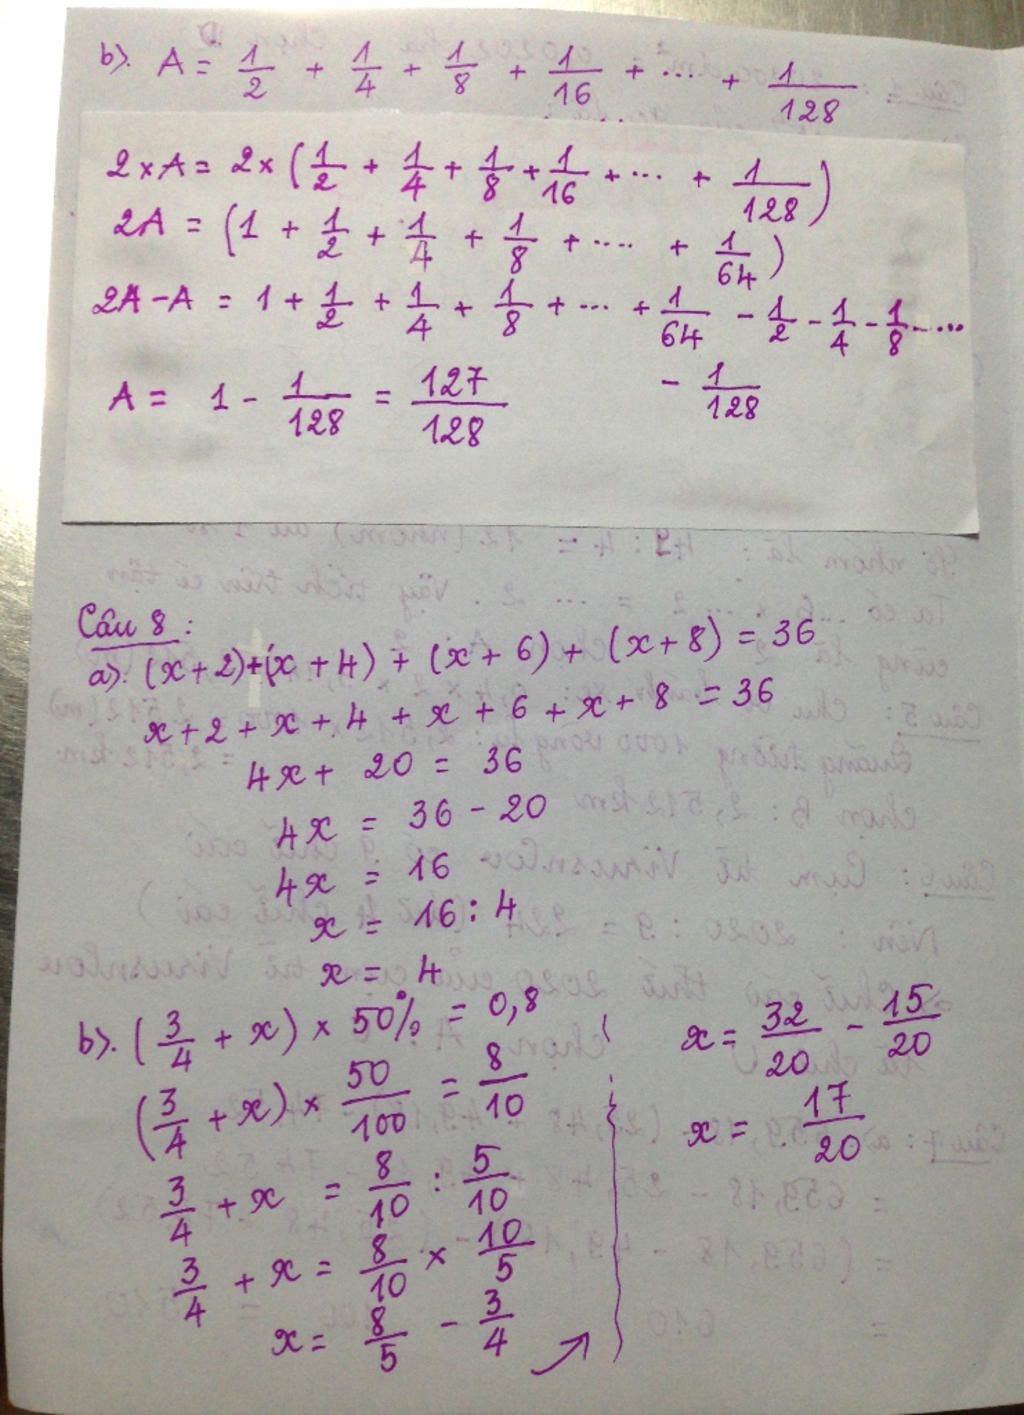 b). A = 1/2 + 1/4 + 1/8 + 1/16 + ... + 1/128
2 x A = 2 x (1/2 + 1/4 + 1/8 + 1/16 + ... + 1/128)
2A = (1 + 1/2 + 1/4 + 1/8 + .... + 1/64)
2A - A = 1 + 1/2 + 1/4 + 1/8 + ... + 1/64 - 1/2 - 1/4 - 1/8 - ...
- 1/128
A = 1 - 1/128 = 127/128
Câu 8 :
a). (x + 2) + (x + 4) + (x + 6) + (x + 8) = 36
x + 2 + x + 4 + x + 6 + x + 8 = 36
4x + 20 = 36
4x = 36 - 20
4x = 16
x = 16 : 4
x = 4
b). (3/4 + x) x 50% = 0,8
(3/4 + x) x 50/100 = 8/10
3/4 + x = 8/10 : 5/10
3/4 + x = 8/10 x 10/5
x = 8/5 - 3/4
x = 32/20 - 15/20
x = 17/20